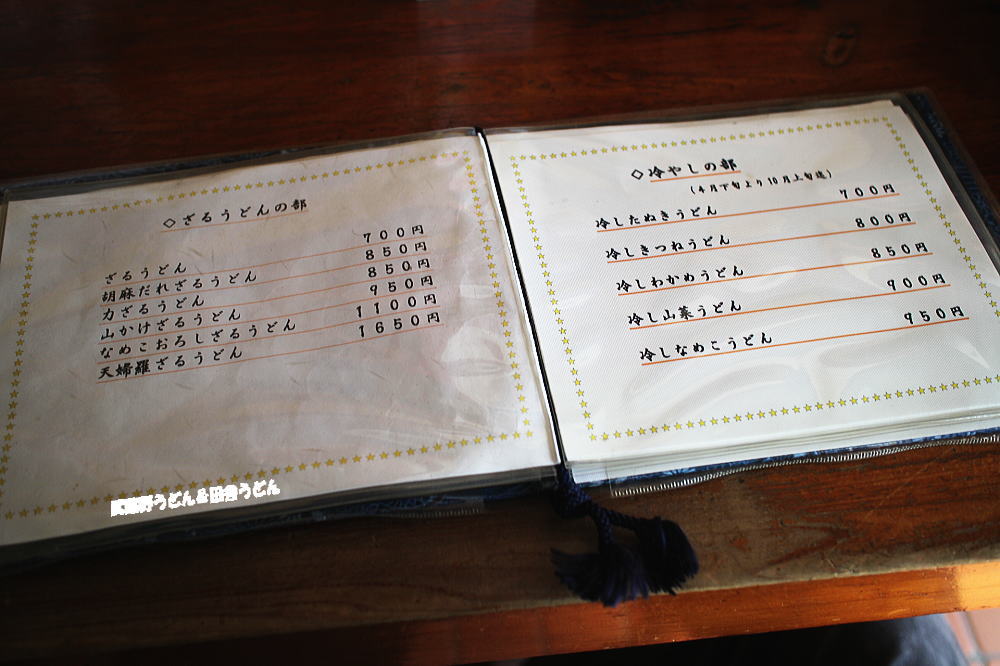 ◇ざるうどんの部
ざるうどん 700円
胡麻だれざるうどん 850円
力ざるうどん 850円
山かけざるうどん 950円
なめこおろしざるうどん 1100円
天婦羅ざるうどん 1650円
◇冷やしの部
(4月下旬より10月上旬迄)
冷したぬきうどん 700円
冷しきつねうどん 800円
冷しわかめうどん 850円
冷し山菜うどん 900円
冷しなめこうどん 950円
武蔵野うどん&田舎うどん